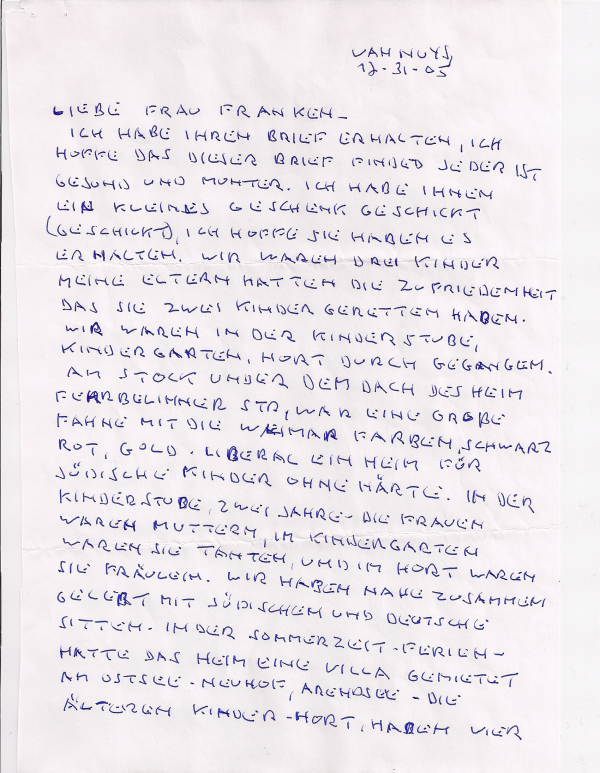 VAN NUYS,
12-31-05
LIEBE FRAU FRANKEN-
ICH HABE IHREN BRIEF ERHALTEN, ICH
HOFFE DAS DIESER BRIEF FINDED JEDER IST
GESUND UND MUNTER. ICH HABE IHNEN
EIN KLEINES GESCHENK GESCHICKT
(GESCHICKT), ICH HOFFE SIE HABEN ES
ERHALTEN. WIR WAREN DREI KINDER
MEINE ELTERN HATTEN DIE ZUFRIEDENHEIT
DAS SIE ZWEI KINDER GERETTEN HABEN.
WIR WAREN IN DER KINDERSTUBE,
KINDERGARTEN, HORT DURCH GEGANGEN.
AM STOCK UNDER DEM DACH DES HEIM
FEHRBELINNER STR, WAR EINE GROßE
FAHNE MIT DIE WEIMAR FARBEN, SCHWARZ
ROT, GOLD. LIBERAL EIN HEIM FÜR
JÜDISCHE KINDER OHNE HÄRTE. IN DER
KINDERSTUBE, ZWEI JAHRE - DIE FRAUEN
WAREN MUTTERN, IM KINDERGARTEN
WAREN SIE TANTEN, UND IM HORT WAREN
SIE FRÄULEIN. WIR HABEN NAHE ZUSAMMEN
GELEBT MIT JÜDISCHEN UND DEUTSCHE
SITTEN. IN DER SOMMERZEIT-FERIEN-
HATTE DAS HEIM EINE VILLA GEMIETET
AM OSTSEE-NEUHOF, ARENDSEE-DIE
ÄLTEREN KINDER-HORT, HABEN VIER